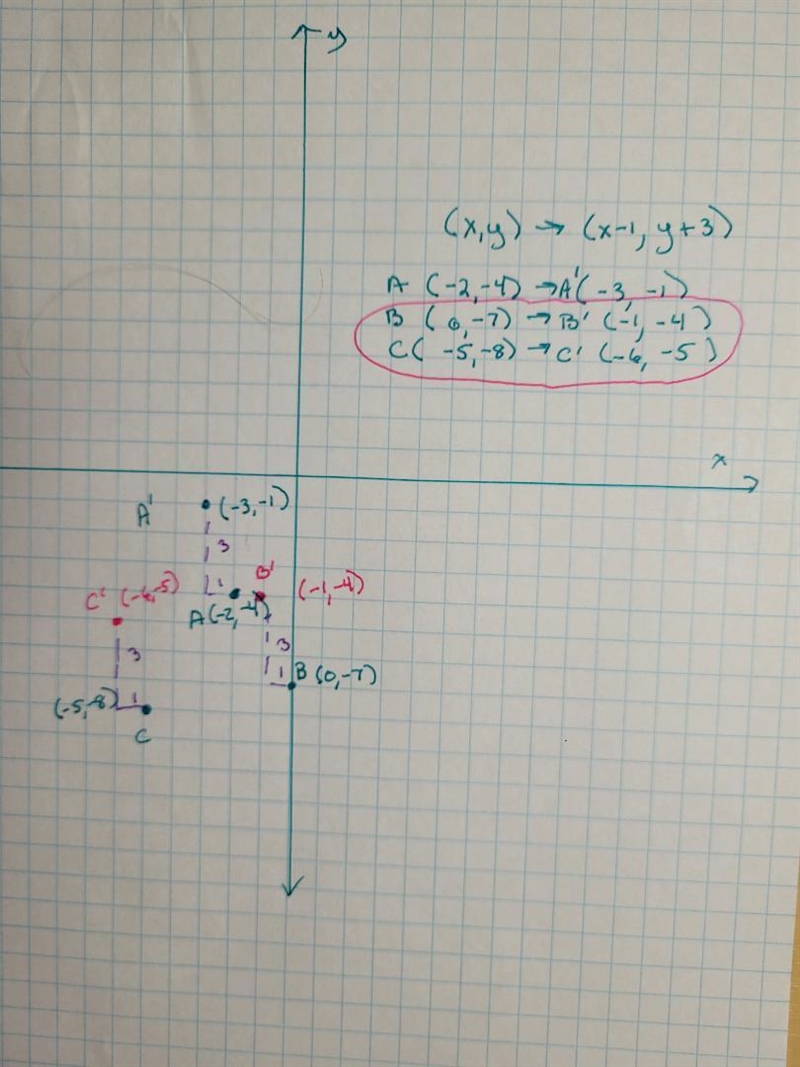 y
(x,y) → (x-1, y+3)
A (-2,-4) →A'(-3, -1)
B (0,-7) → B' (-1, -4)
C( -5,-8) → C' (-6, -5)
x
A' (-3,-1)
3
B'
C' (-6,-5) 1 (-1,-4)
A(-2,-4)
3 3
1 B (0,-7)
(-5,-8) 1
C